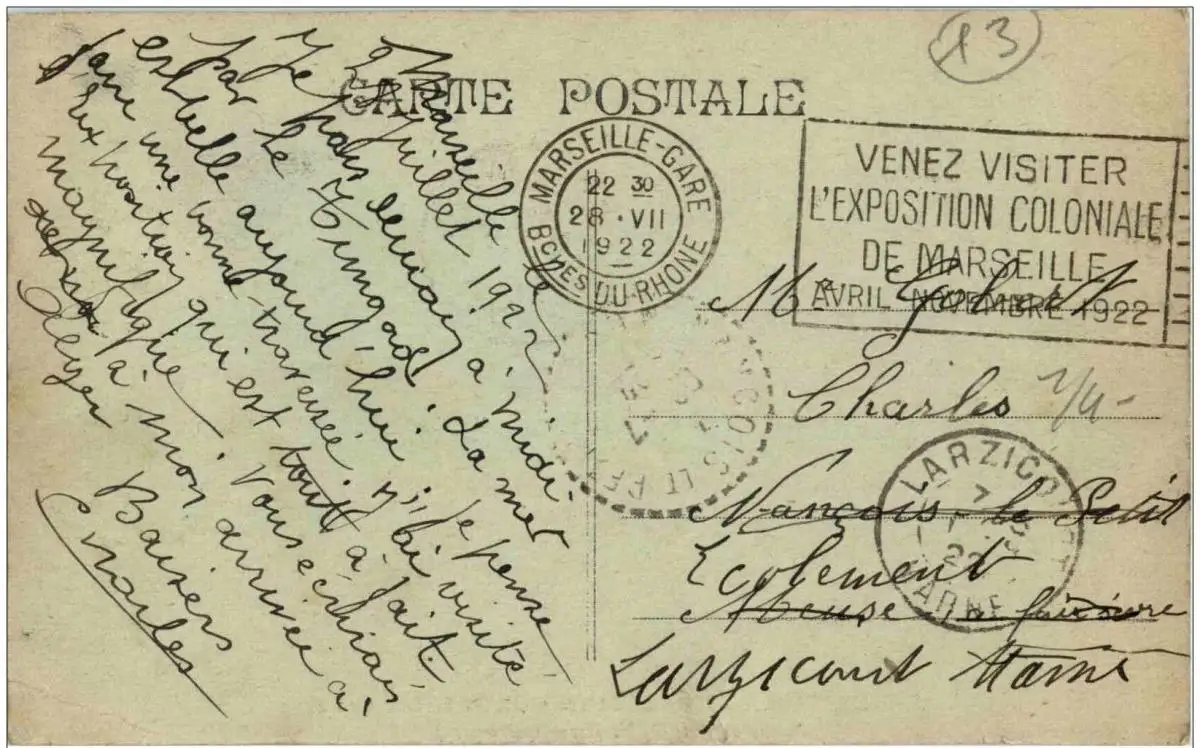 13
CARTE POSTALE
MARSEILLE-GARE
22 30
28 · VII
1922
Bches DU-RHONE
VENEZ VISITER
L'EXPOSITION COLONIALE
DE MARSEILLE
AVRIL NOVEMBRE 1922
Marseille le
27 Juillet 1922
Je pars demain à midi
par le Timgad. La mer
est belle aujourd'hui, je pense
faire une bonne traversée, j'ai visité
l'Exposition qui est tout à fait
magnifique. Vous écrirai
à mon arrivée à
Alger
Baisers
Charles
Mr
Charles
Nançois-le Petit
Meuse
Larzicourt Marne
LARZICOURT
7
22
MARNE